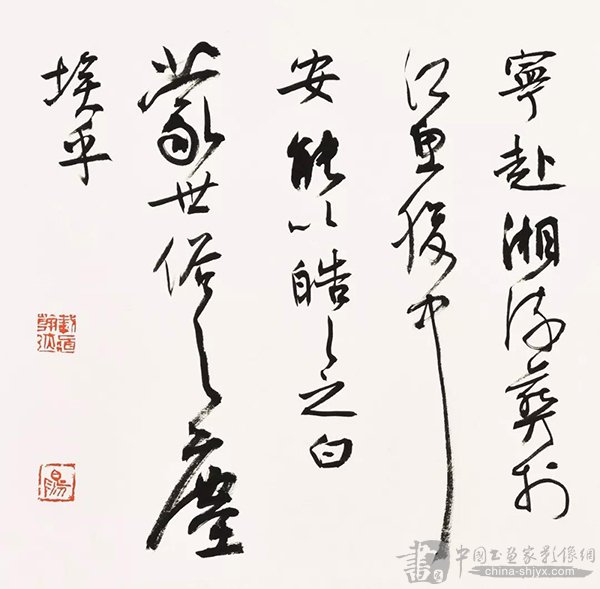 寧赴湘流葬於
江魚腹中
安能以皓々之白
蒙世俗之塵
埃乎
中国书画家影像網
china-shjyx.com